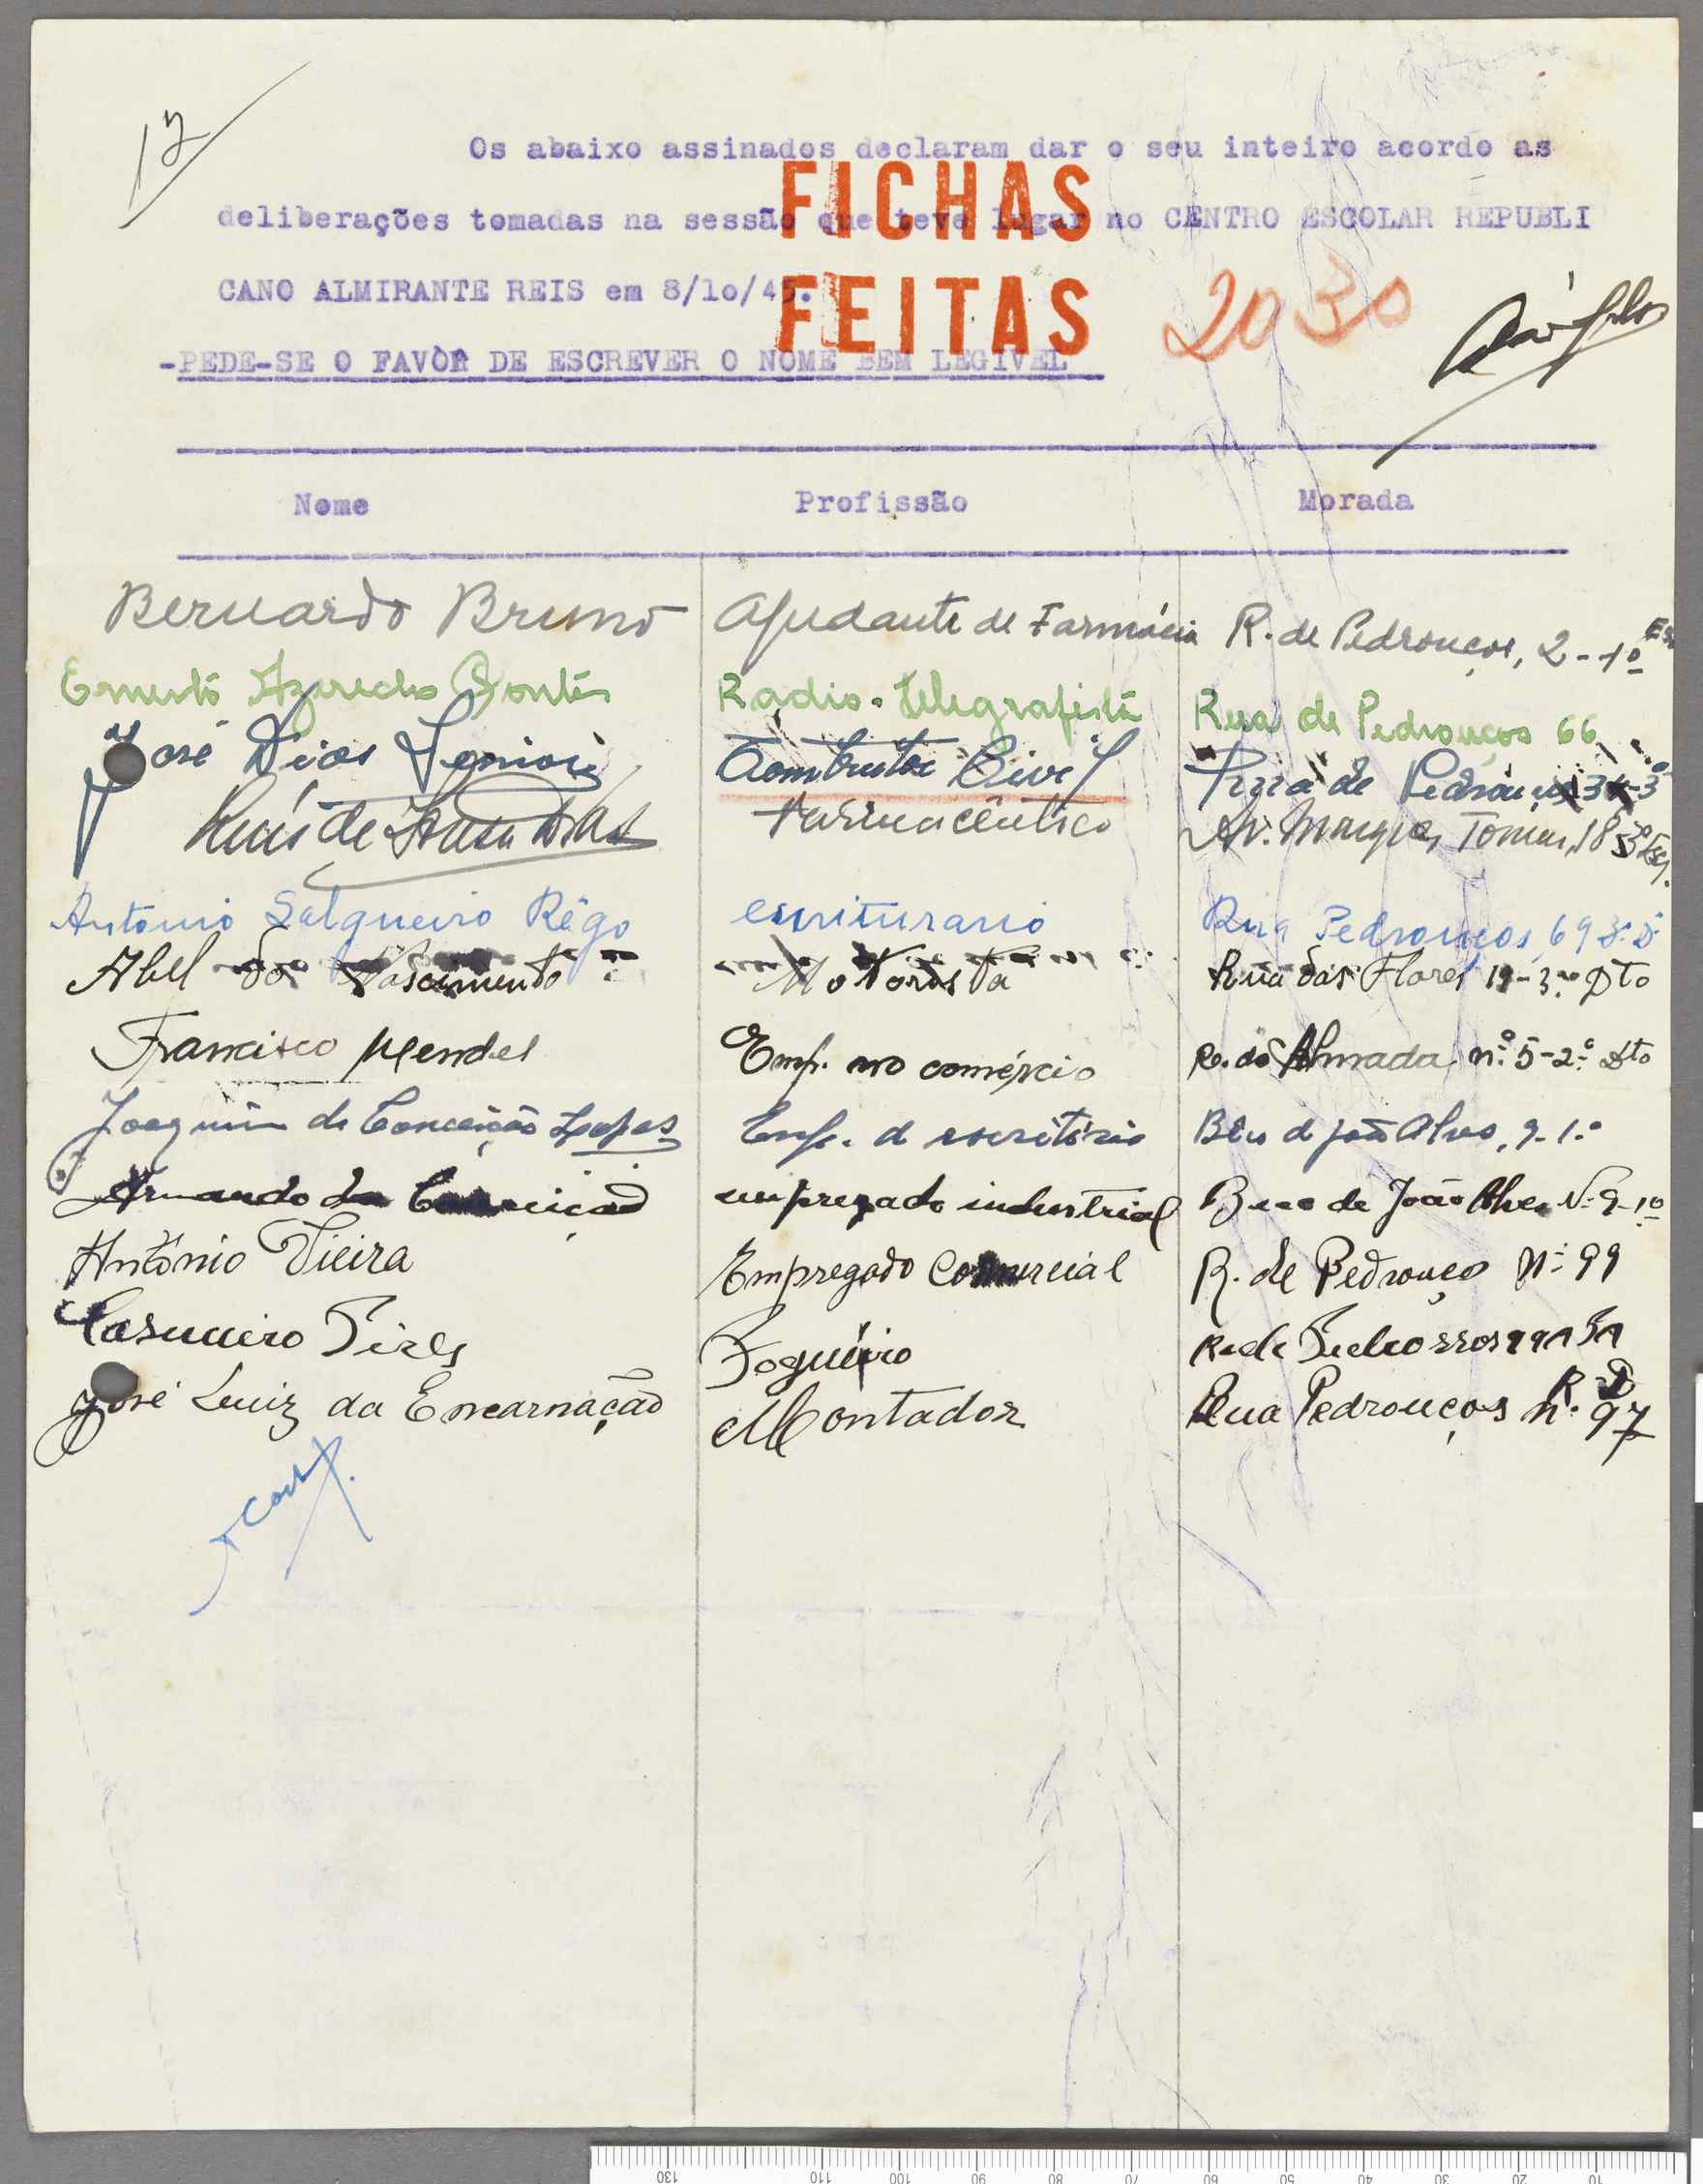 17
Os abaixo assinados declaram dar o seu inteiro acordo as
deliberações tomadas na sessão que teve lugar no CENTRO ESCOLAR REPUBLI
CANO ALMIRANTE REIS em 8/10/45.
FICHAS
FEITAS
2030
-PEDE-SE O FAVOR DE ESCREVER O NOME BEM LEGIVEL
Nome Profissão Morada
Bernardo Bruno Ajudante de Farmácia R. de Pedrouços, 2-1º Es
Ernesto Azevedo Radio-telegrafista Rua de Pedrouços 66
José Dias Construtor Civil de Pedrouços
Luís de Sousa Dias Farmacêutico Av. Marques Tomar, 18
António Salgueiro Rêgo escriturario Rua Pedrouços, 69
Abel do Nascimento Motorista Rua das Flores 19-3º Dto
Francisco Mendes Emp. no comércio R. do Almada n.º 5-2.º Dto
Joaquim da Conceição Lopes Emp. d escritório Bêco d João Alves, 9-1.º
Armando da Conceição empregado industrial Beco de João Alves Nº 9-1º
António Vieira Empregado Comercial R. de Pedrouços Nº 99
Casimiro Pires Fogueiro
José Luiz da Encarnação Montador Rua Pedrouços n.º 97 R-D